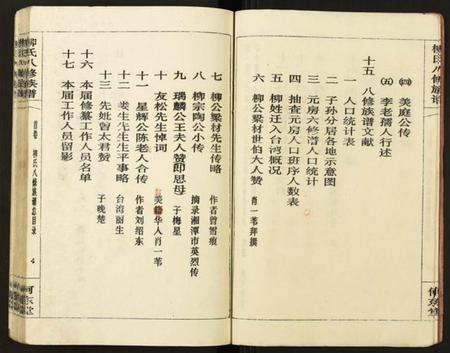 柳氏八修族谱
㈣ 美庭公传
㈤ 李老孺人行述
十五 八修族谱文献
一 人口统计表
二 子孙分居各地示意图
三 元房六修谱人口统计
四 抽查元房人口班序人数表
五 柳姓迁入台湾概况
六 柳公梁材世伯大人赞 肖一苇拜撰
七 柳公梁材先生传略 作者曾雪痕
八 柳宗陶公小传 摘录湘潭市英烈传
九 瑞麟公王夫人赞即恩母 子梅星
十 友松先生悼词 美籍华人肖一苇
十一 星辉公陈老人合传 作者刘绍东
十二 萋生先生生平事略 台湾丽生
十三 先妣曾太君赞 子晚楚
十六 本届修纂工作人员名单
十七 本届工作人员留影
柳氏八修族谱
首卷 柳氏八修族谱总目录
4
河东堂